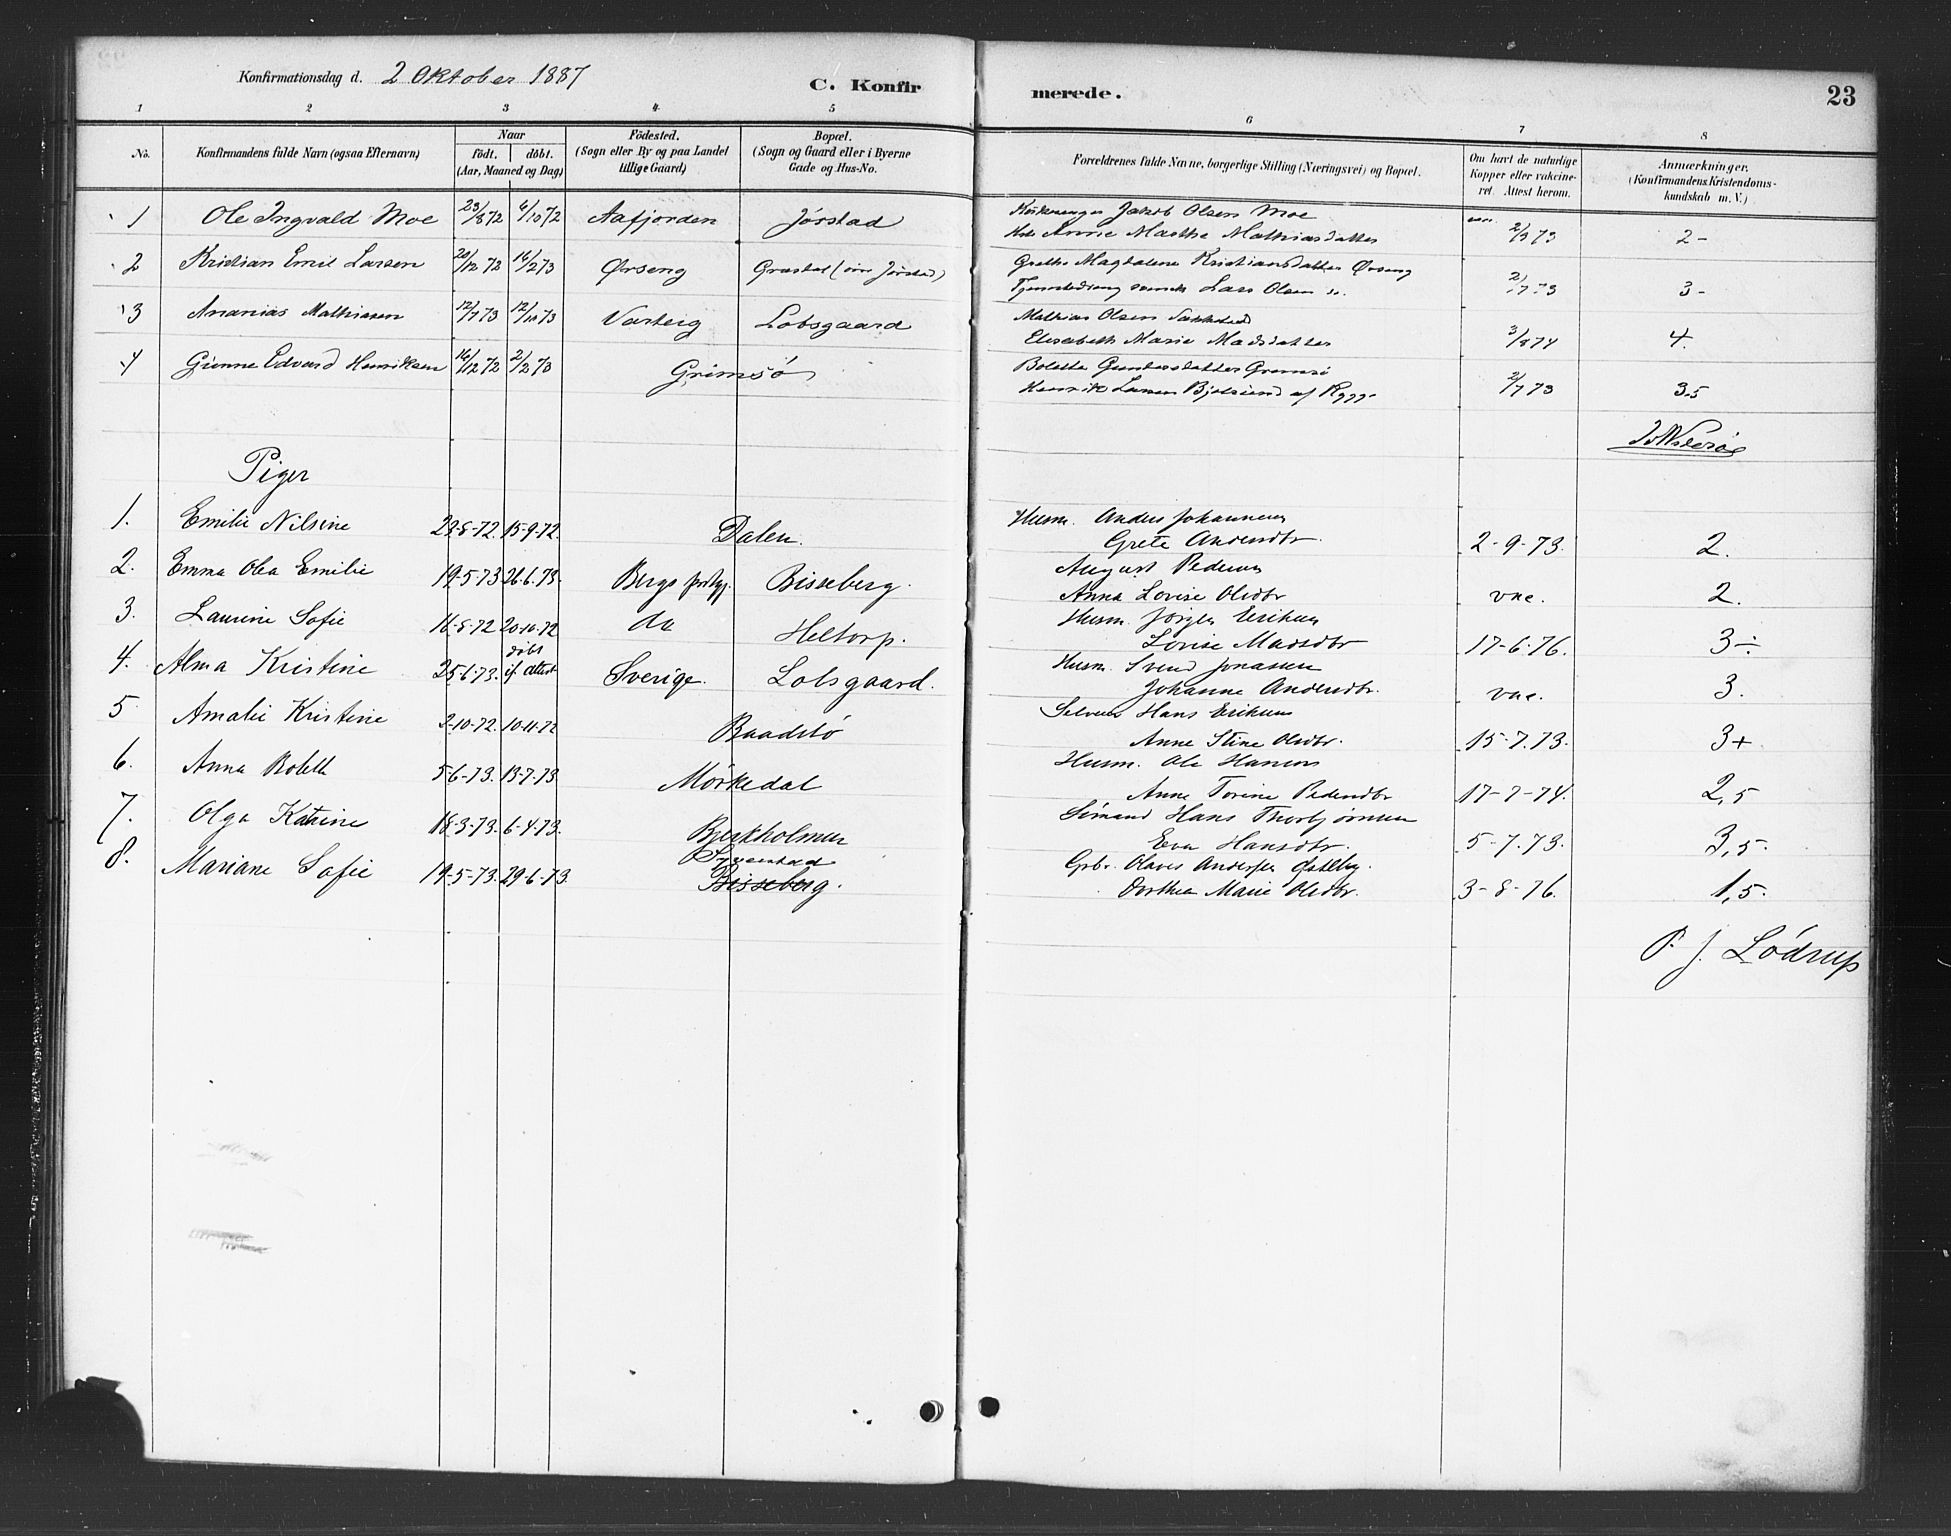 Konfirmationsdag d. 2 Oktober 1887
C. Konfir merede.
23
1 2 3 4 5 6 7 8
No. Konfirmandens fulde Navn (ogsaa Efternavn) Naar födt. döbt. (Aar, Maaned og Dag) Födested. (Sogn eller By og paa Landet tillige Gaard) Bopæl. (Sogn og Gaard eller i Byerne Gade og Hus-No. Forældrenes fulde Navne, borgerlige Stilling (Næringsvei) og Bopæl. Om havt de naturlige Kopper eller vakcineret. Attest herom. Anmærkninger. (Konfirmandens Kristendomskundskab m. V.)
1 Ole Ingvald Moe 23/8 72 6/10 72 Aafjorden Jørstad Jakob Olsen Moe
Anne Marthe Mathiasdatter 2/9 73 2-
2 Kristian Emil Larsen 20/12 72 16/2 73 Ørseng Græsdal Grethe Magdalene Kristiansdatter Ørseng
Lars Olsen 2/7 73 3-
3 Ananias Mathiasen 12/7 73 12/10 73 Varteig Lobsgaard Mathias Olsen
Elisabeth Marie Madsdatter 3/8 74 4.
4 Gunne Edvard Henriksen 16/12 72 2/2 73 Grimsø Bolette Gundersdatter Grimsø
Henrik Larsen af Rygge 2/7 73 3.5
Piger
1. Emilie Nilsine 23-8-72. 15-9-72. Dalen. Husm. Anders Johannesen
Grete Andersdtr. 2-9-73. 2.
2. Emma Olea Emilie 19-5-73 26.6.73. Bergs Bisseberg. August Pedersen
Anna Lovise Olsdtr vac. 2.
3. Laurine Sofie 16-8-72 20-10-72 do Heltorp. Husm. Jørgen Eriksen
Lovise Madsdtr 17-6-76. 3÷
4. Alma Kristine 25-6-73. döbt if. Attest Sverige. Lobsgaard. Husm. Svend Jonassen
Johanne Andersdtr. vac. 3.
5 Amalie Kristine 2-10-72. 10-11-72 Baadstø Selveier Hans Eriksen
Anne Stine Olsdtr. 15-7.73. 3+
6. Anna Boleth 5-6-73. 13-7-73 Mörkedal Husm. Ole Hansen
Anne Torine Pedersdtr 17-7-74. 2,5
7. Olga Katrine 18-3-73. 6-4-73. Bjerkholmen Sömand Hans Thorbjørnsen
Eva Hansdtr. 5-7.73. 3,5.
8. Mariane Sofie 19-5-73. 29-6-73. Bisseberg. Grbr. Olaves Andersen Østeby.
Dorthea Marie Olsdtr. 3-8-76. 1,5.
P. J. Lødrup